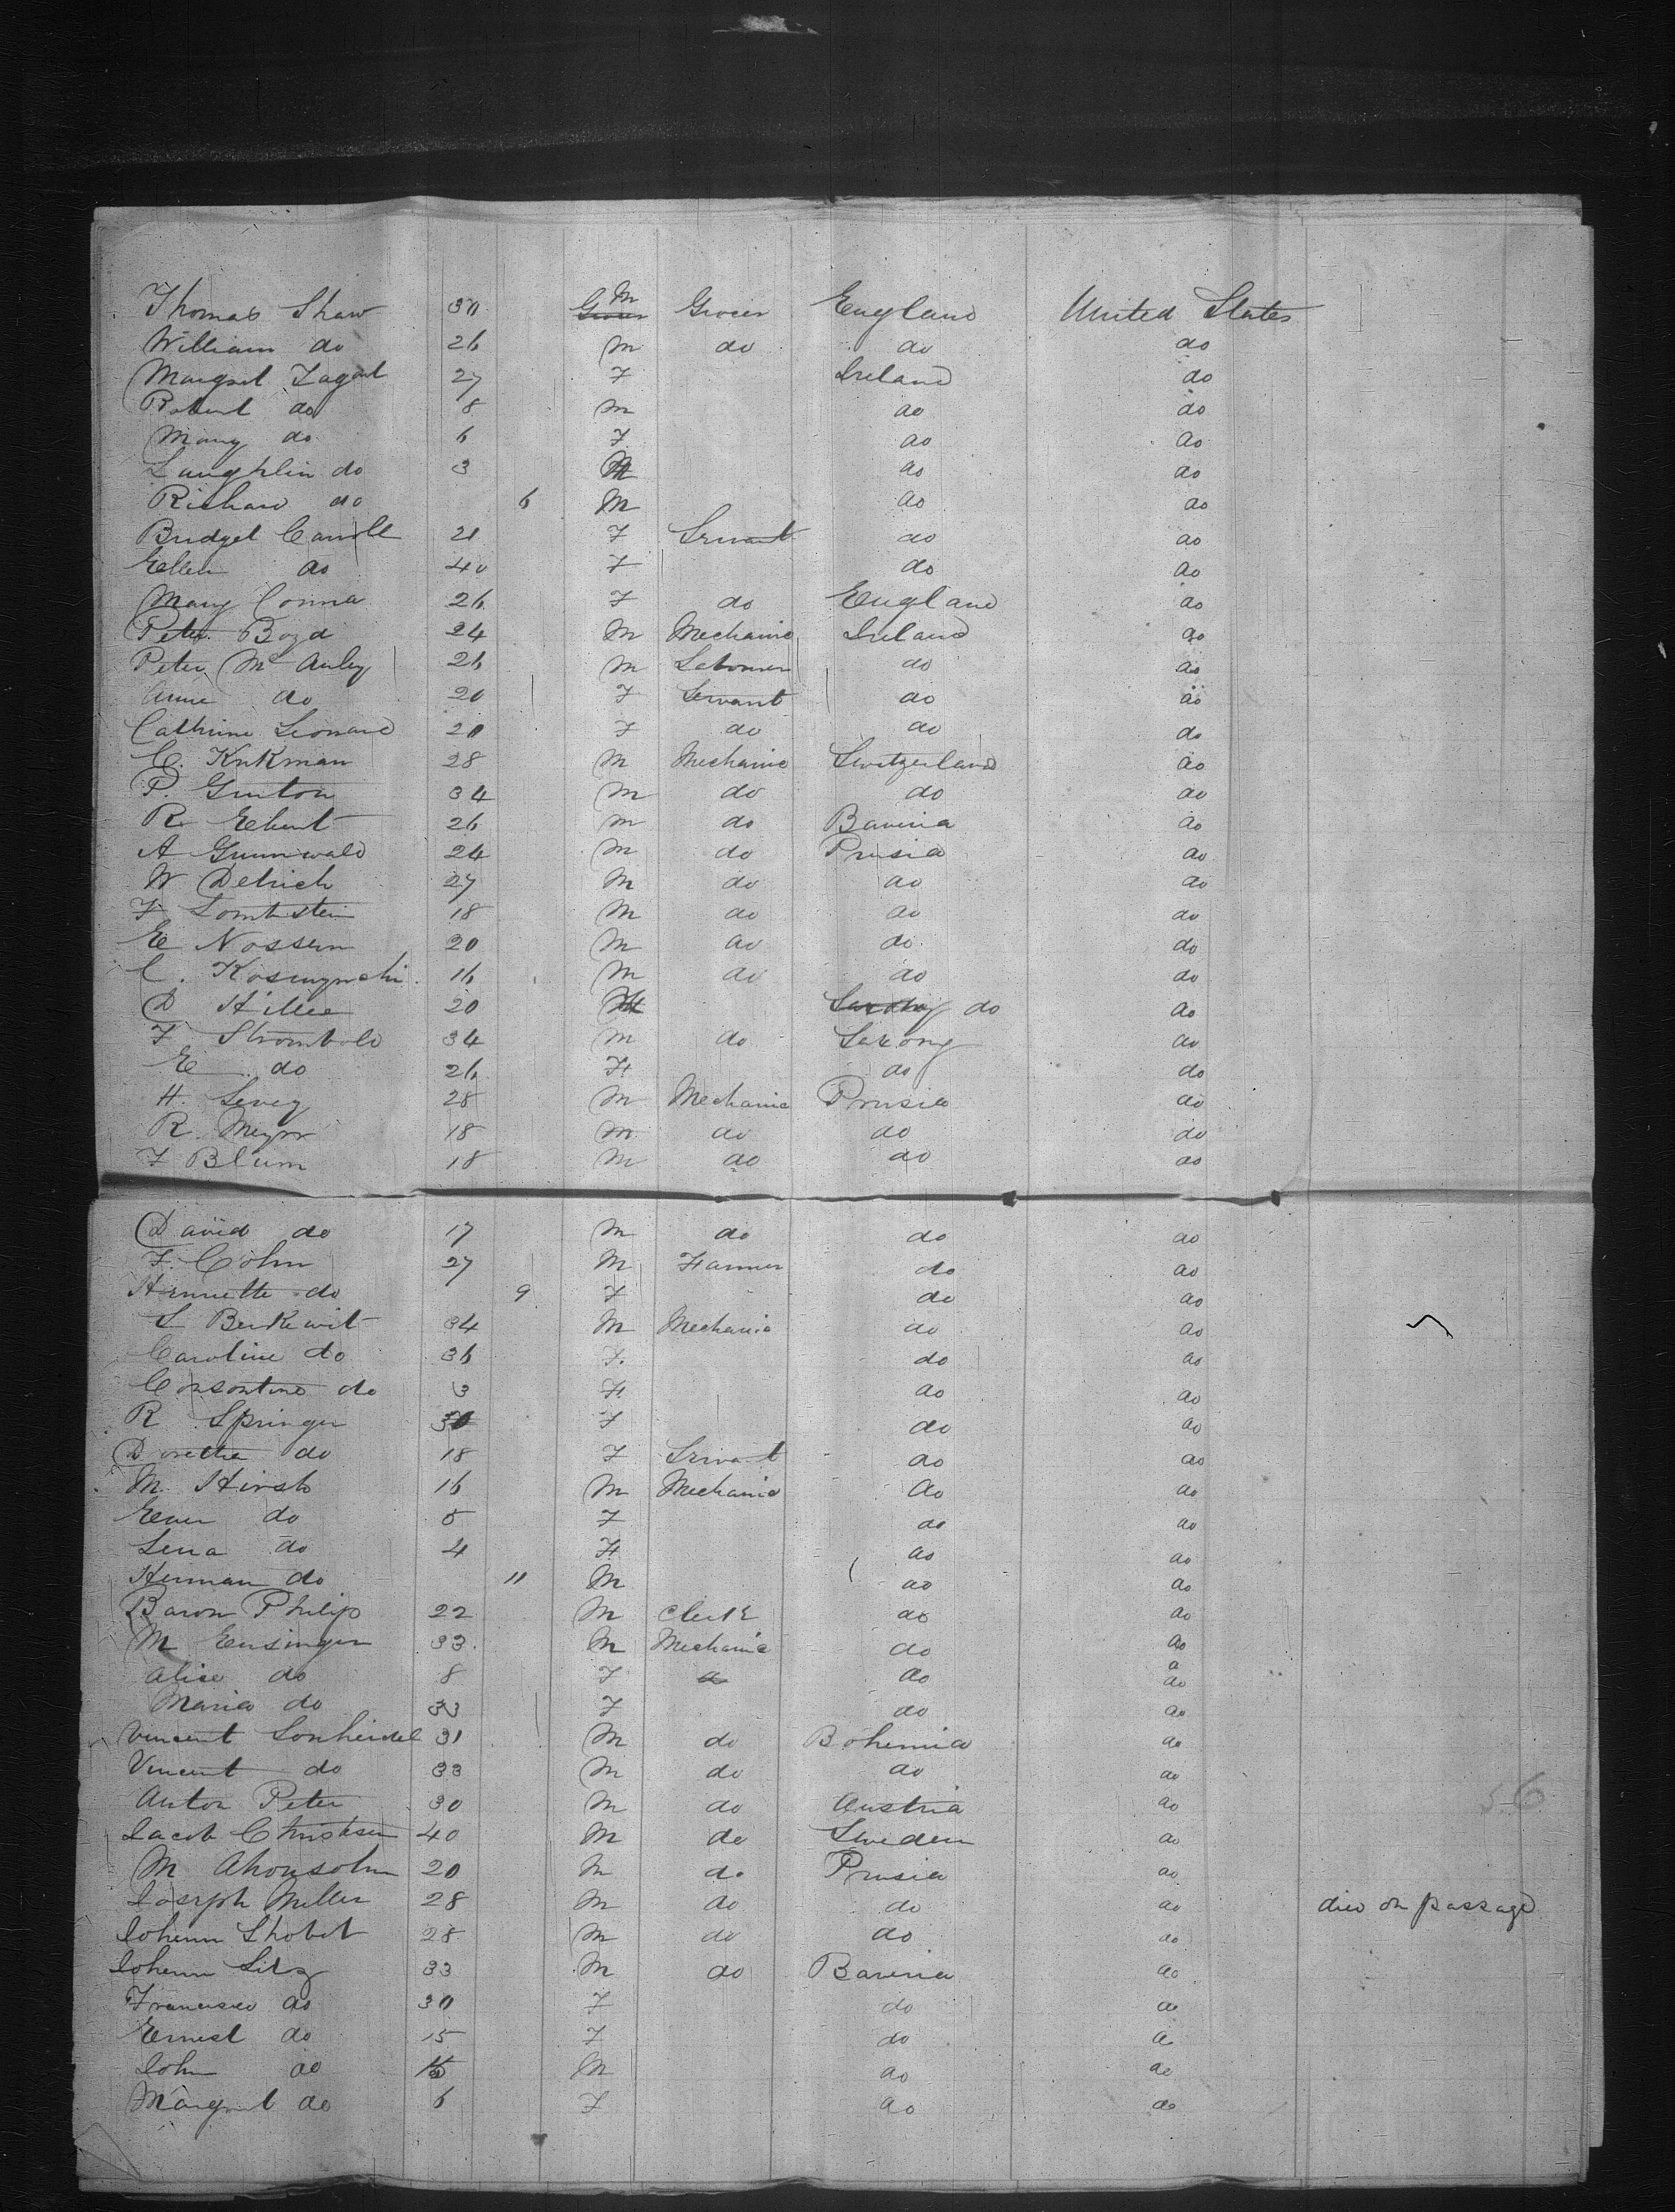 Thomas Shaw 30 M Grocer England United States
William do 26 M do do do
Margret Tagart 27 F Ireland do
Robert do 8 M do do
Mary do 6 F do do
Laughlin do 3 M do do
Richard do 6 M do do
Bridget Carroll 21 F Servant do do
Ellen do 40 F do do
Mary Conna 26 F do England do
Peter Boyd 24 M Mechanic Ireland do
Peter McAuley 26 M Labourer do do
Anne do 20 F Servant do do
Cathrine Leonard 20 F do do do
C. Kukman 28 M Mechanic Switzerland do
P. Guiton 34 M do do do
R Ebert 26 M do Baveria do
A Grunwald 24 M do Prusia do
W Detrich 27 M do do do
F Lombstein 18 M do do do
E Nossen 20 M do do do
C. 16 M do do do
D Hille 20 do do
F Strombold 34 M do Saxony do
E do 26 F do do
H. Levey 28 M Mechanic Prusia do
R. Meyer 18 M do do do
F Blum 18 M do do do
David do 17 M do do do
F. Cohn 27 M Farmer do do
Henriette do 9 F do do
S Berkewit 34 M Mechanic do do
Caroline do 36 F. do do
Consontine do 3 F do do
R Springer 30 F do do
Dorethe do 18 F Servant do do
M. Hirsh 16 M Mechanic do do
do 5 F do do
Lena do 4 F do do
Herman do 11 M do do
Baron Philip 22 M Clerk do do
M Ensinger 33. M Mechanic do do
Alise do 8 F do do
Maria do 33 F do do
Vincent Sonheidel 31 M do Bohemia do
Vincent do 33 M do do do
Anton Peter 30 M do Austria do
56
Jacob Christsen 40 M do Sweden do
M Ahonsohn 20 M do Prusia do
Joseph Miller 28 M do do do died on passage
Johenn Shobet 28 M do do do
Johenn Silz 33 M do Baveria do
Francisco do 30 F do do
Ernest do 15 F do do
John do M do do
Margret do 6 F do do